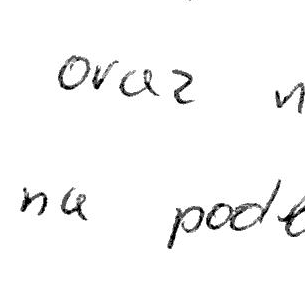 oraz n
na pode